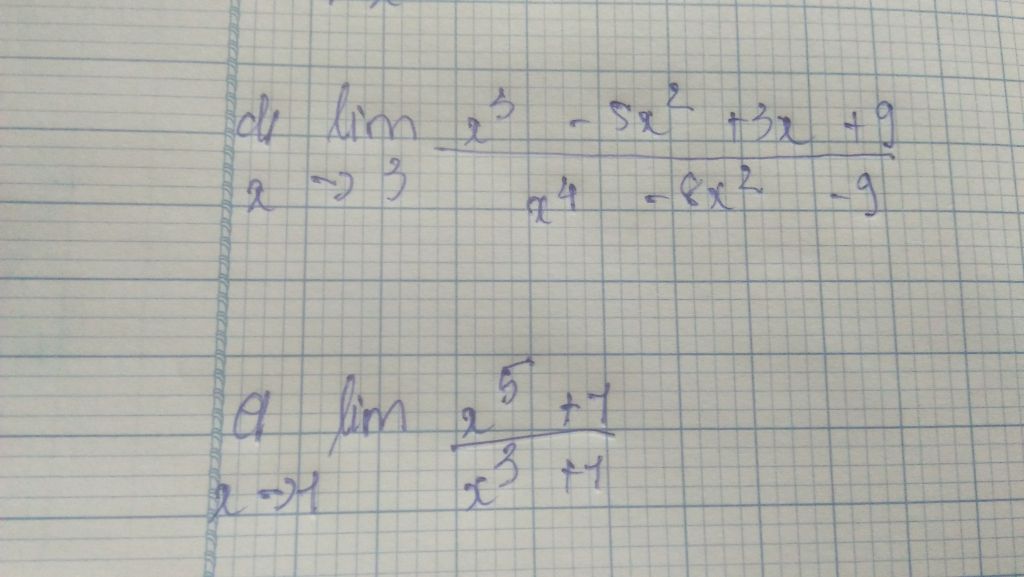 d) lim x³ - 5x² + 3x + 9
x → 3 x⁴ - 8x² - 9
e) lim x⁵ + 1
x → 1 x³ + 1